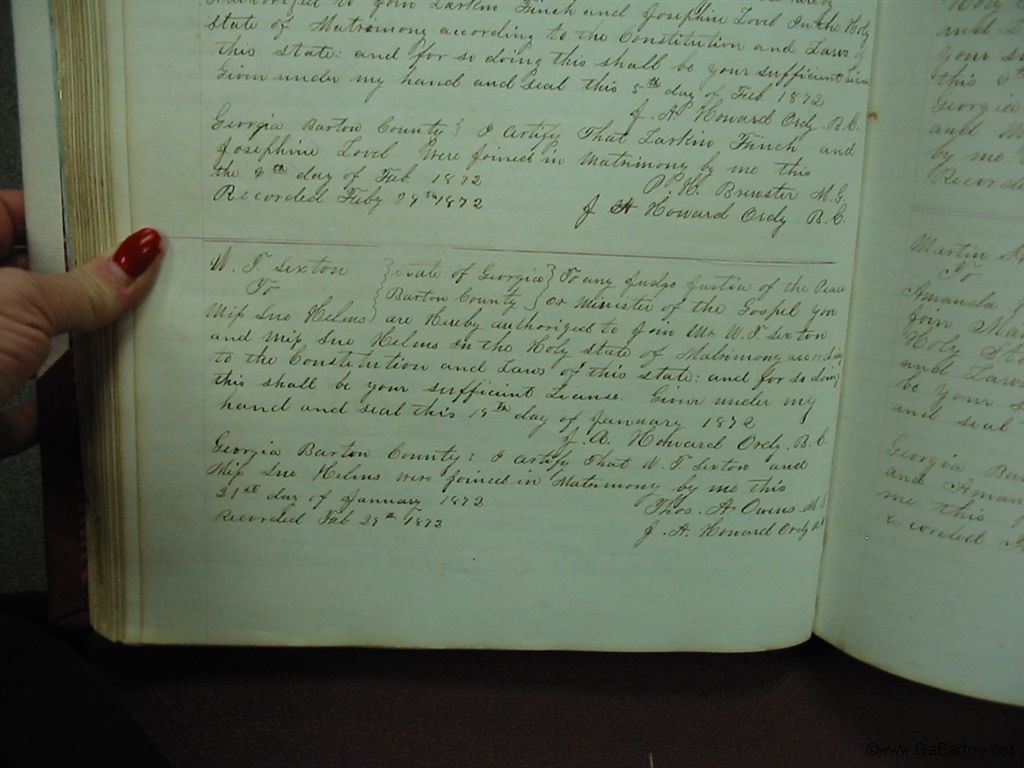 authorised to join Larkin Finch and Josephine Lovel In the Holy
state of Matrimony according to the Constitution and Laws of
this state: and for so doing this shall be your sufficient
Given under my hand and seal this 5th day of Feb 1872
J. A. Howard Ordy. B.C.
Georgia Barton County } I Certify That Larkin Finch and
Josephine Lovel were joined in Matrimony by me this
the 8th day of Feb 1872
P. H. Brewster M.G.
Recorded Feby 29th 1872
J A Howard Ordy B.C.
W. T. Sexton } State of Georgia } To any Judge Justice of the Peace
To } Barton County } or Minister of the Gospel you
Miss Sue Helms } are Hereby authorized to Join Mr W. T. Sexton
and Miss Sue Helms in the Holy state of Matrimony according
to the Constitution and Laws of this state: and for so doing
this shall be your sufficient License. Given under my
hand and seal this 19th day of January 1872
J. A. Howard Ordy. B.C.
Georgia Barton County: I Certify That W. T. Sexton and
Miss Sue Helms were joined in Matrimony by me this
21st day of January 1872
Thos. A Owens M
Recorded Feb 29th 1872
J. A. Howard Ordy
Martin
To
Amanda
Join
Holy
and Laws
be your
and seal
Georgia
and Aman
me this
©www.GaBartow.org